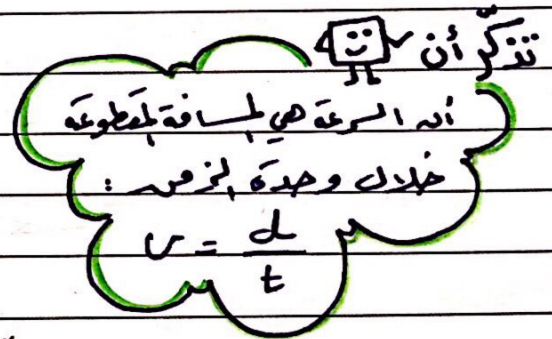 تذكّر أن
أن السرعة هي المسافة المقطوعة
خلال وحدة الزمن :
v = d / t